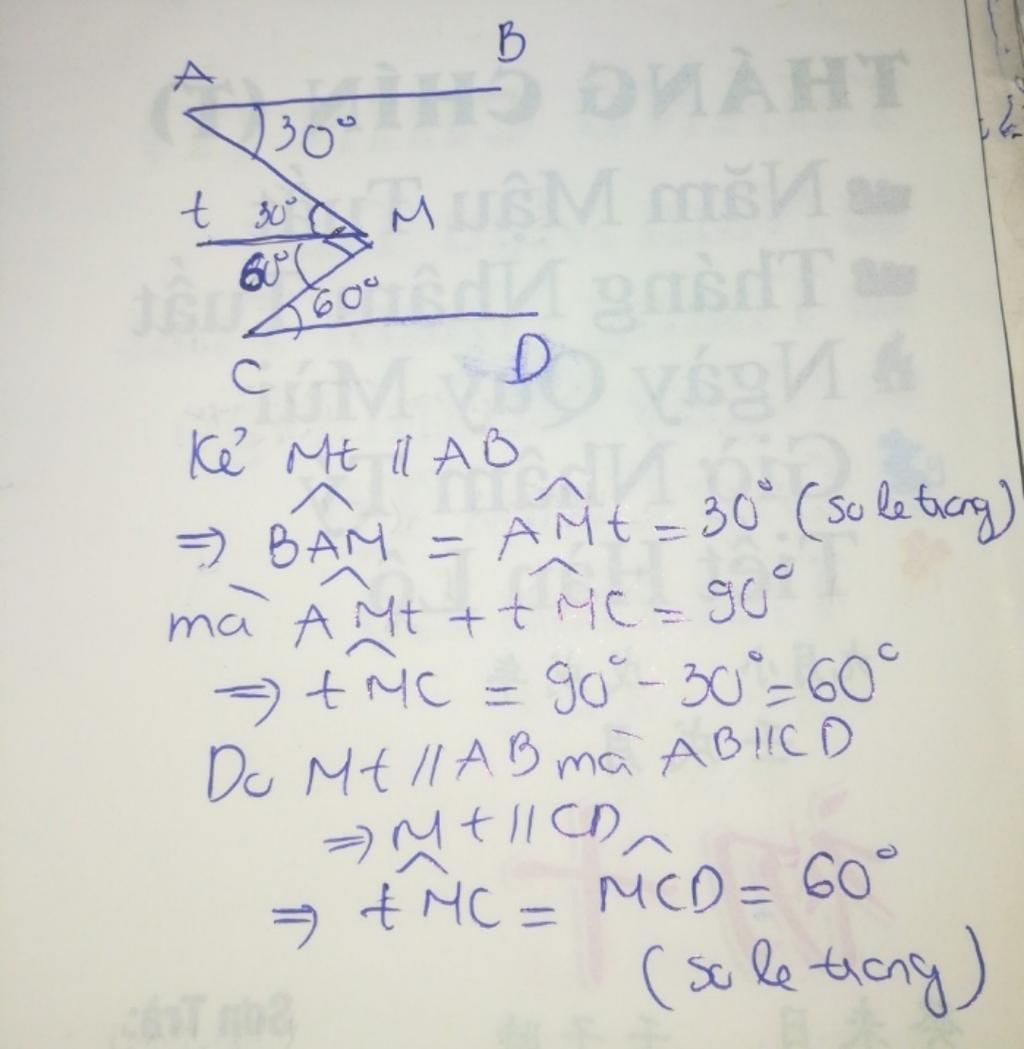 B
A
30°
t 30° M
60°
60°
C D
Kẻ Mt // AB
=> BÂM = AM̂t = 30° (so le trong)
mà AM̂t + tM̂C = 90°
=> tM̂C = 90° - 30° = 60°
Do Mt // AB mà AB // CD
=> Mt // CD
=> tM̂C = MĈD = 60°
(so le trong)
THÁNG CHÍN (T)
Năm Mậu Tuất
Tháng Nhâm Tuất
Ngày Quý Mùi
Giờ Nhâm Tý
Tiết Hàn Lộ
Sơn Trà: